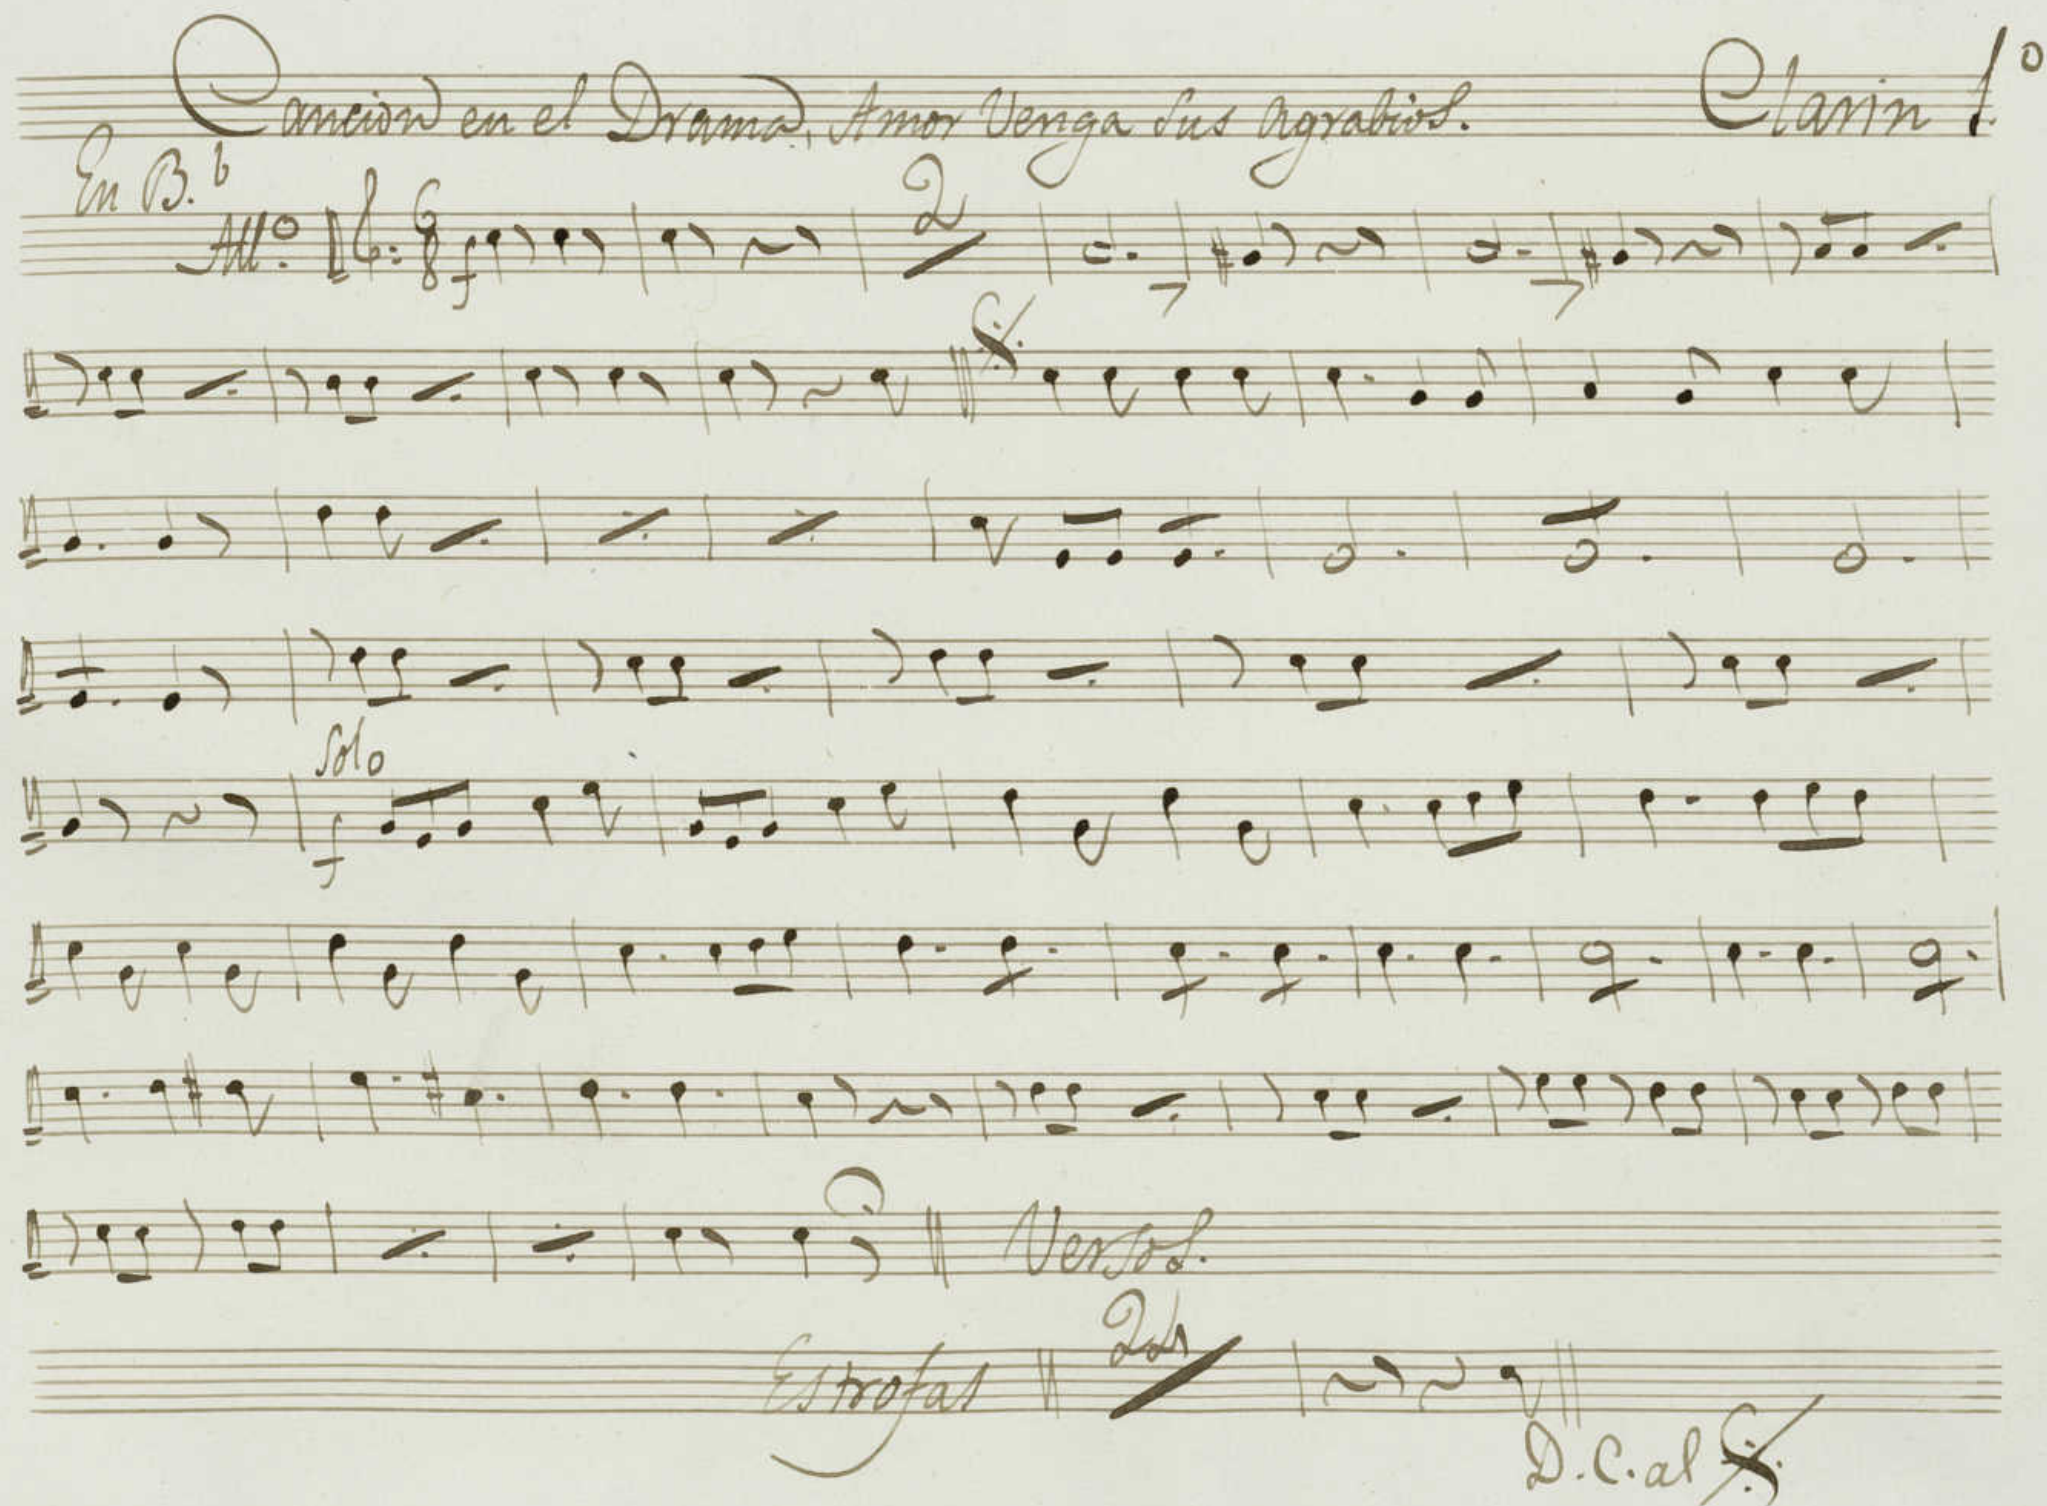 Cancion en el Drama, Amor Venga Sus Agrabios. Clarin 1.º
En B.b
All.º 6 8 f 2
Solo
f
Versos.
Estrofas
D.C. al